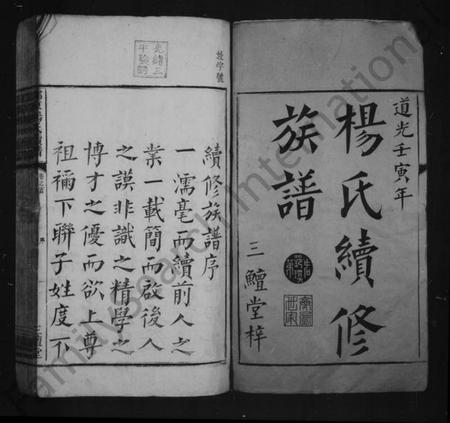 道光壬寅年
楊氏續修
族譜
三鱣堂梓
敦字號
光緒三
年驗訖
續修族譜序
一濡毫而續前人之
業一載簡而啟後人
之謨非識之精學之
博才之優而欲上尊
祖禰下聯子姓度不
序
三鱣堂
FamilySearch International